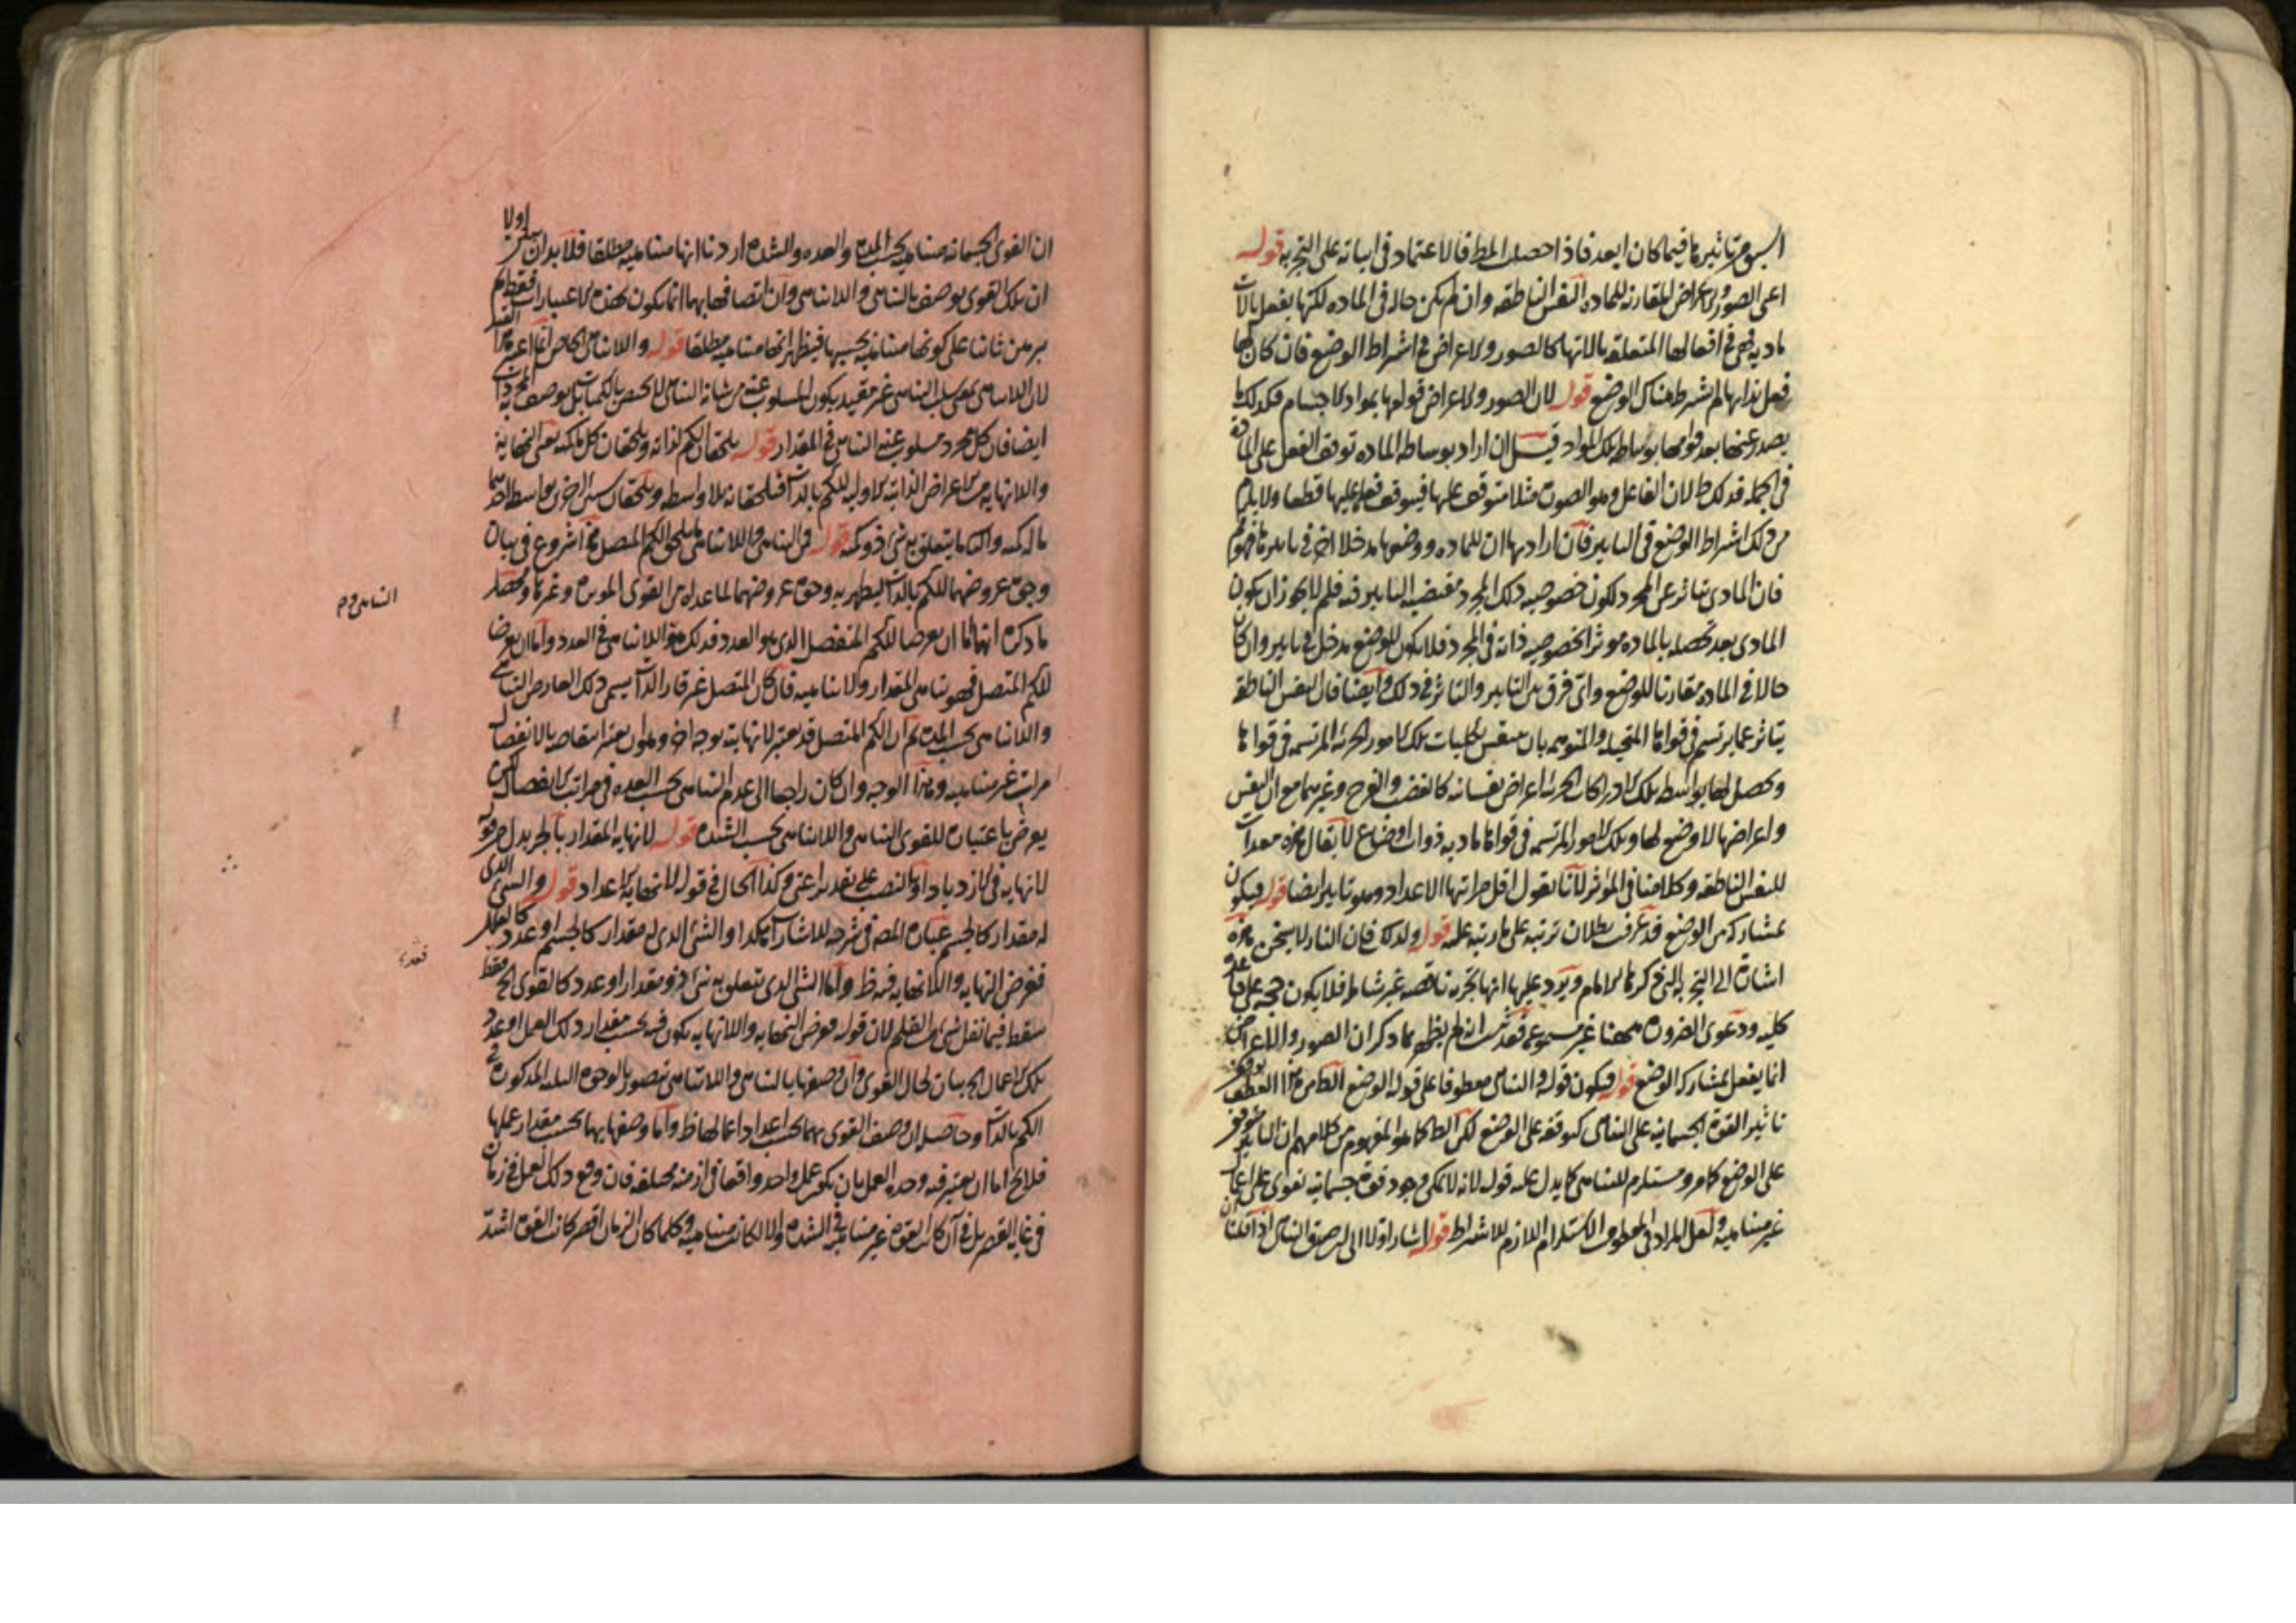 اسبق من تاثيرها فيما كان ابعد فاذا حصلت المط فالاعتماد في اثباته على التجربه قوله
اعنى الصور والاعراض المقارنة للماده النفس الناطقه وان لم يكن حاله في الماده لكنها يفعل بالات
ماديه فهى في افعالها المتعلقه بالاتها كالصور والاعراض في اشتراط الوضع فان كان لها
فعل بذاتها لم اشترط هناك الوضع قوله لان الصور والاعراض قوامها بمواد الاجسام فكذلك ما
يصدر عنها بعد قوامها بوساطه تلك المواد قيل ان اراد بوساطه الماده توقف الفعل على الماده
في الجمله فذلك ظ لان الفاعل وهو الصوره مثلا متوقف عليها فيتوقف فعله عليها قطعا ولا يلزم
من ذلك اشتراط الوضع في التاثير فان اراد بها ان للماده ووضعها مدخلا اخر في تاثيرها فهو مم
فان المادى يتاثر عن المجرد لكون خصوصيه ذلك المجرد مقتضيه التاثير فيه فلم لا يجوز ان يكون
المادى بعد تحصله بالماده موثرا لخصوصيه ذاته في المجرد فلا يكون للوضع مدخل في تاثيره وان كان
حالا في الماده مقارنا للوضع واى فرق بين التاثير والتاثر في ذلك وايضا فان النفس الناطقه
يتاثر عما يرتسم في قواها المتخيله والمتوهمه بان ينتقش بكليات تلك الامور الجزئيه المرتسمه في قواها
ويحصل لها بواسطه تلك الادراكات الجزئيه اعراض نفسانيه كالغضب والفرح وغيرهما مع ان النفس
واعراضها لا وضع لها وتلك الامور المرتسمه في قواها ماديه ذوات اوضاع لا يقال هذه معدات
للنفس الناطقه وكلامنا في المؤثر لانا نقول اقل مراتبها الاعداد وهو تاثير ايضا قوله فيكون
بمشاركه من الوضع قد عرفت بطلان ترتبه على ما رتبه عليه قوله ولذلك فان النار لا يسخن هذه
اشاره الى التجربه التى ذكرها الامام ويرد عليها انها تجربه ناقصه غير شامله فلا يكون حجه على قاعده
كليه ودعوى الضروره ههنا غير مسموعه فقد ثبت انه لم يظهر مما ذكر ان الصور والاعراض
انما يفعل بمشاركه الوضع قوله فيكون قوله والتناهى معطوفا على قوله الوضع الظاهر من هذا العطف توقف
تاثير القوه الجسمانيه على التناهى كتوقفه على الوضع لكن المفهوم من كلامهم ان التاثير متوقف
على الوضع كما مر ومستلزم للتناهى كما يدل عليه قوله لانه لا يمكن وجود قوه جسمانيه تقوى على اعمال
غير متناهيه ولعل المراد في المعطوف الاستلزام اللازم للاشتراط قوله اشار اولا الى ان التناهى اذا قلنا
اولا
ان القوى الجسمانيه متناهيه بحسب المده والعده والشده اردنا انها متناهيه مطلقا فلا بد ان يبين
ان تلك القوى يوصف بالتناهى واللاتناهى وان اتصافها بهما انما يكون بهذه الاعتبارات فقط ثم
يبرهن ثانيا على كونها متناهيه بحسبها فيظهر انها متناهيه مطلقا قوله واللاتناهى الخاص انما اعتبر هذا القيد
لان اللاتناهى بمعنى سلب التناهى غير مقيد بكون المسلوب عنه من شانه التناهى لا يختص بالكميات بل يوصف به المجردات
ايضا فان كل مجرد مسلوب عنه التناهى في المقدار قوله يلحقان الكم لذاته ويلحقان كل ماله كميه يعنى النهايه
واللانهايه من الاعراض الذاتيه الاوليه للكم بالذات فيلحقانه بلا واسطه ويلحقان سائر الاخرى بواسطه اما
ما له كميه واما ما يتعلق به شئ ذو كميه قوله فمن التناهى واللاتناهى ما يلحق الكم المتصل هذا شروع في بيان
وجوه عروضهما للكم بالذات ليظهر به وجوه عروضهما لما عداه من القوى الموثره وغيرها ومحصل
ما ذكره انهما اما ان يعرضا للكم المنفصل الذى هو العدد فذلك هو اللاتناهى في العدد واما ان يعرضا
للكم المتصل فهو تناهى المقدار ولاتناهيه فان كان المتصل غير قار الذات يسمى ذلك العارض التناهى
واللاتناهى بحسب المده ثم ان الكم المتصل قد يعتبر لانهايته بوجه اخر وهو ان يعتبر انتقاصه بالانفصال
مراتب غير متناهيه وهذا الوجه وان كان راجعا الى عدم التناهى بحسب العده في مراتب الانفصال لكن
يعرض باعتباره للقوى التناهى واللاتناهى بحسب الشده قوله لانهايه المقدار بالجر بدل من قوله
لانهايه في الازدياد او بالنصب على تقدير اعنى وكذا الحال في قوله لانهايه الاعداد قوله والشئ الذى
له مقدار كالجسم عباره المصه في شرحه للاشارات هكذا والشئ الذى له مقدار كالجسم او عدد كالعلل
ففرض النهايه واللانهايه فيه ظ واما الشئ الذى يتعلق به شئ ذو مقدار او عدد كالقوى الخ فقط
سقط فيما نقل شئ من القلم لان قوله ففرض النهايه واللانهايه يكون فيه بحسب مقدار ذلك العمل او عدد
تلك الاعمال الخ بيان لحال القوى وان وصفها بالتناهى واللاتناهى يتصور بالوجوه الثلثه المذكوره في
الكم بالذات وحاصله ان وصف القوى بهما بحسب اعداد اعمالها ظ واما وصفها بهما بحسب مقدار عملها
فلا يخ اما ان يعتبر فيه وحده العمل بان يكون عمل واحد واقعا في ازمنه مختلفه فان وقع ذلك العمل في زمان
في غايه القصر بل في آن كانت القوه غير متناهيه في الشده والا لكانت متناهيه وكلما كان الزمان اقصر كانت القوه اشد